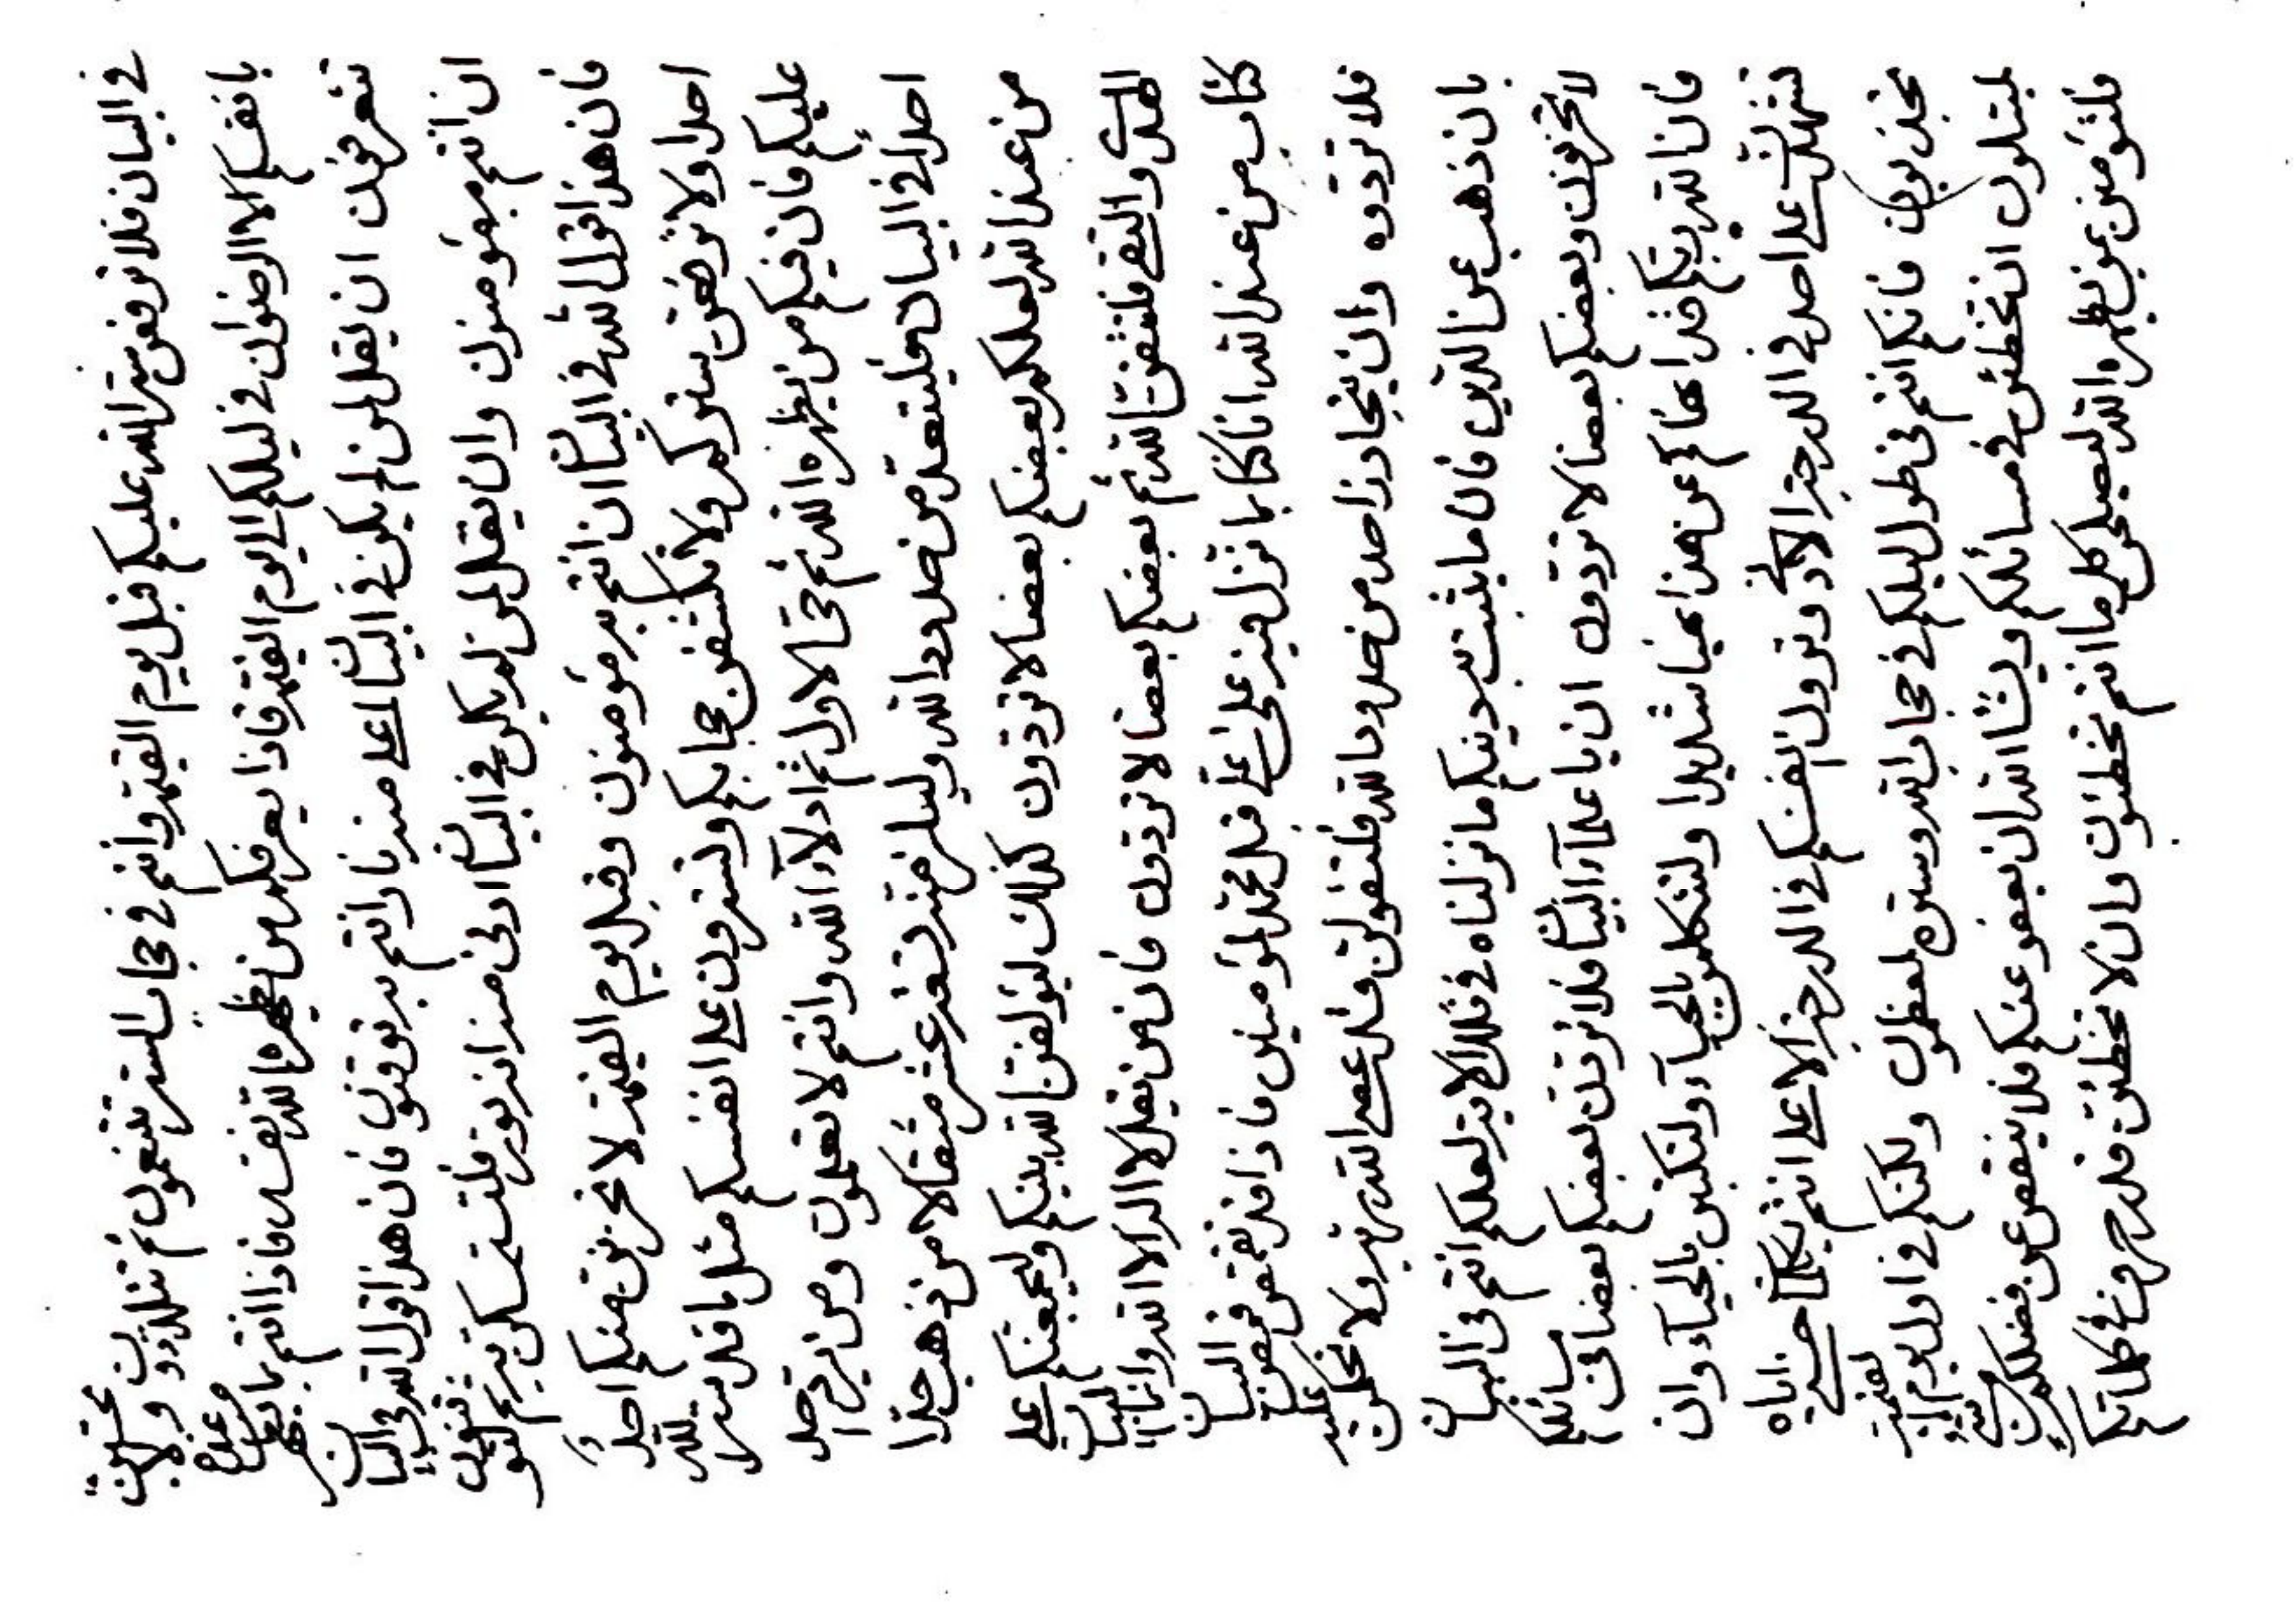 في البيان فلا ترفعن ستر الله عليكم قبل يوم القيمة وانتم في حجاب الستر تنعمون ثم تتلذذون ولا
بانفسكم الا الرضوان في ليلكم الى يوم القيمة فاذا يعرفكم من يظهره الله نفسه فاذا انتم
تتعرفون ان يقل لمن لم يكن في البيان اعلى منه نا وانتم به توقنون فان هذا قول الله في البيان
ان انتم به مؤمنون وان يقل لمن لم يكن في البيان ادنى منه انه نور فلتستمسكن به ثم
فان هذا قول الله في البيان ان انتم به مؤمنون وقبل يوم القيمة لا تحزنن منكم احدا
احدا ولا ترفعن ستوركم ولا تكشفن حجابكم ولتسترون على انفسكم مثل ما قد ستر الله
عليكم فان فيكم من يظهره الله ثم حي الاول ثم ادلاء الله وانتم لا تعلمون ومن يرد حد
احدا في البيان فليتعد من حدود الله وليلزمنه تسعة عشر مثقالا من ذهب حدا
من عند الله لعلكم بعضكم بعضا لا تردون كذلك ليؤلفن الله بينكم وليجمعنكم على
الهدى والتقى فلتتقن الله ثم بعضكم بعضا لا تردون فان من يقل لا اله الا الله وانا
كتاب من عند الله انا كنا بما نزل فيه على علي قبل محمد لمؤمنين فاذا قد تقمص قمص البيان
فلا تردوه وان يتجاوز احد من حدود الله فلتقولن قد عصى الله ربه ولا تحكمن عليه
بان ذهب عن الدين فان ما يثبت به دينكم ما نزلناه في تلك الاية لعلكم انتم في البيان
لا تحزنون وبعضكم بعضا لا تردون ان يا علماء البيان فلا تردن بعضكم بعضا في مسائلكم
فان الله ربكم قد انهاكم عن هذا نهيا شديدا ولتتكلمن بالحياء ولتكتبن بالحياء وان
تشهدن على احد في الدرجة الادنى وترون انفسكم في الدرجة الاعلى انتم بكلمة خير اياه
تجذبون فانكم انتم في طول ليلكم في حجاب الله وستره لمعظمون ولكنكم في اول يوم القيمة
لمبتلون ان تخطئن في مسائلكم وشاء الله ان يعفو عنكم فلا ينقص عن فضلكم من شيء
فلتؤمنن بمن يظهره الله ليصلح كل ما انتم تخطئون وان لا تخطئن قدر حرف في كلماتكم